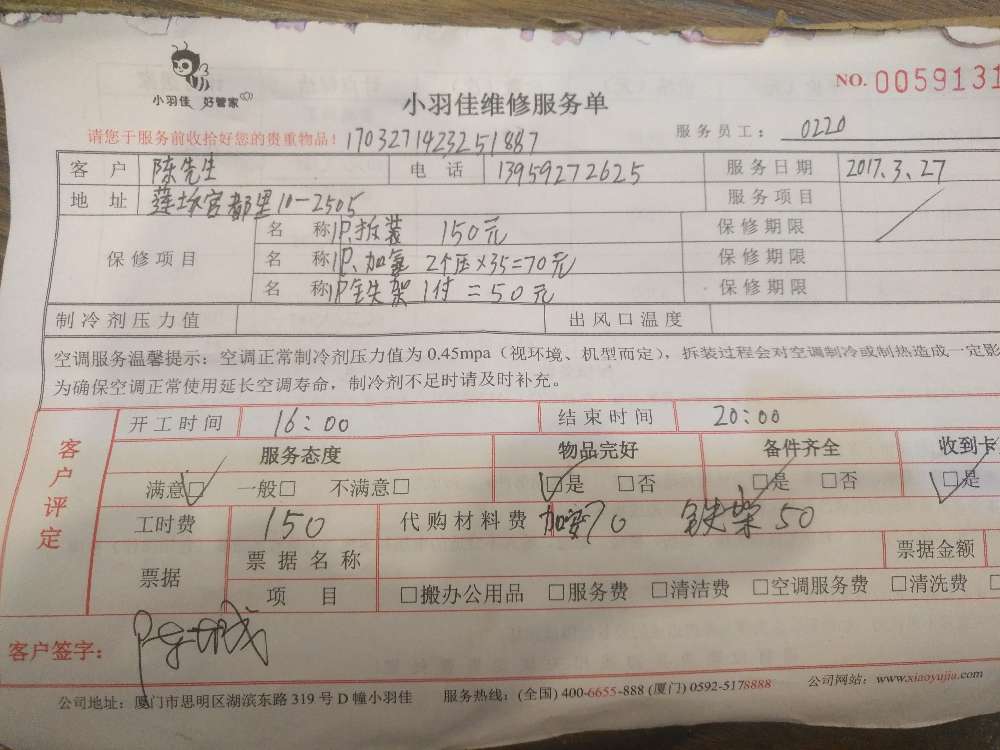 小羽佳 好管家
小羽佳维修服务单
NO. 0059131
请您于服务前收拾好您的贵重物品！ 17032714232251887
服务员工： 0220
客户 陈先生 电话 13959272625 服务日期 2017.3.27
地址 莲坂宫都里10-2505 服务项目
保修项目
名称 1P.拆装 150元 保修期限
名称 1P.加氟 2个压×35=70元 保修期限
名称 1P 铁架 1付=50元 保修期限
制冷剂压力值 出风口温度
空调服务温馨提示：空调正常制冷剂压力值为 0.45mpa（视环境、机型而定），拆装过程会对空调制冷或制热造成一定影
为确保空调正常使用延长空调寿命，制冷剂不足时请及时补充。
客户评定
开工时间 16:00 结束时间 20:00
服务态度 物品完好 备件齐全 收到卡
满意☑ 一般□ 不满意□ ☑是 □否 ☑是 □否 ☑是
工时费 150 代购材料费 加氟70 铁架 50
票据 票据名称 票据金额
项目 □搬办公用品 □服务费 □清洁费 □空调服务费 □清洗费 □
客户签字：
公司地址：厦门市思明区湖滨东路 319 号 D 幢小羽佳 服务热线：(全国) 400-6655-888 (厦门) 0592-5178888 公司网站：www.xiaoyujia.com